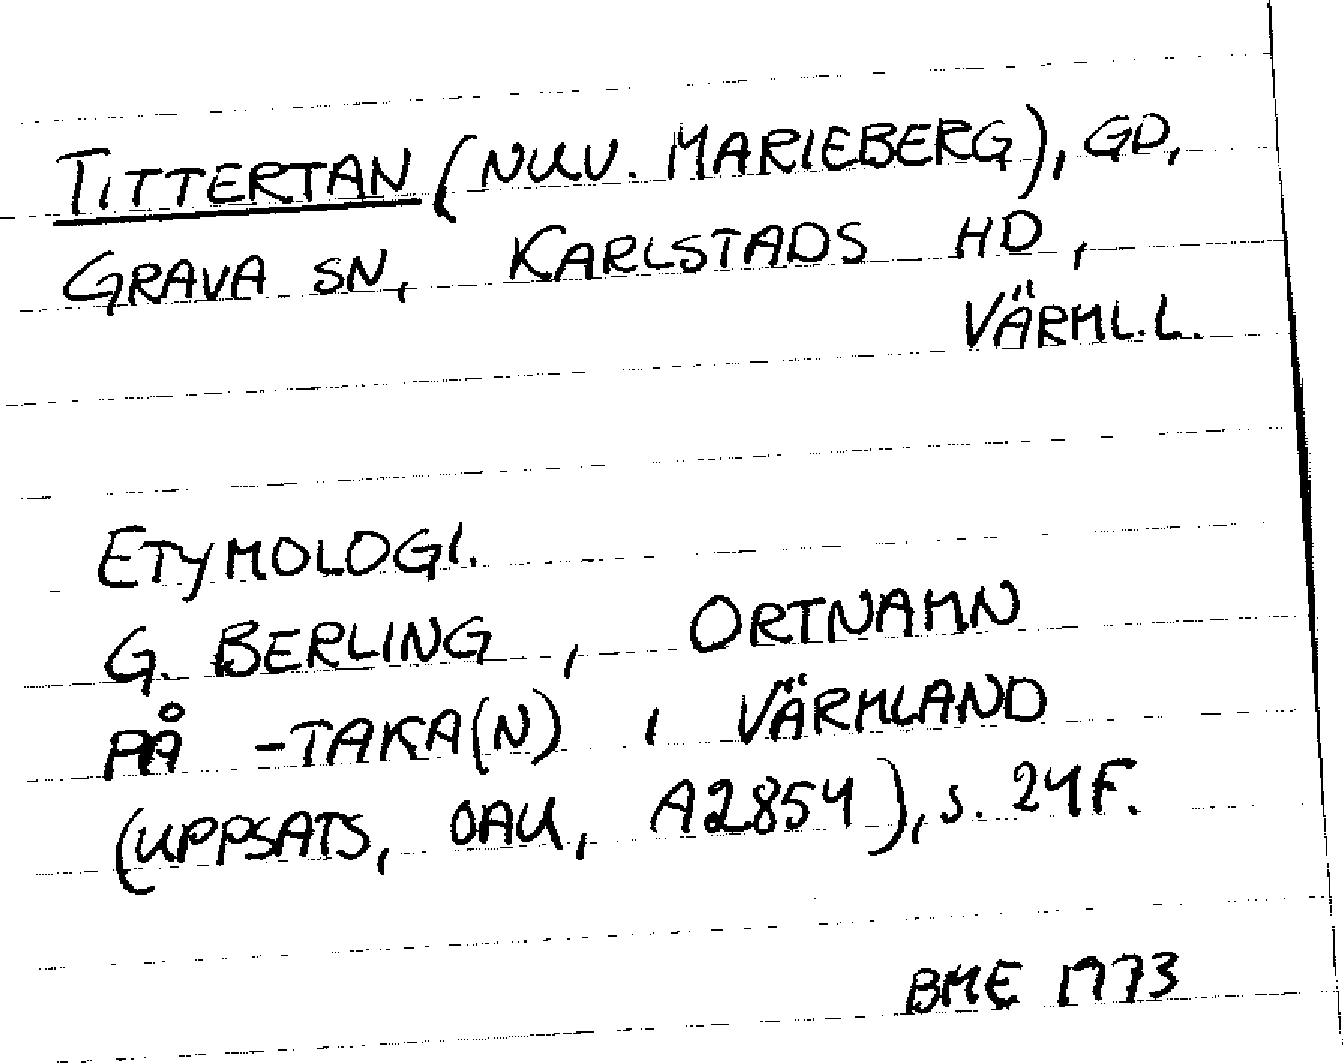 TITTERTAN (NUV. MARIEBERG), GD,
GRAVA SN, KARLSTADS HD,
VÄRML.L.
ETYMOLOGI.
G. BERLING, ORTNAMN
PÅ -TAKA(N) I VÄRMLAND
(UPPSATS, OAU, A2854), S. 24F.
BME 1973